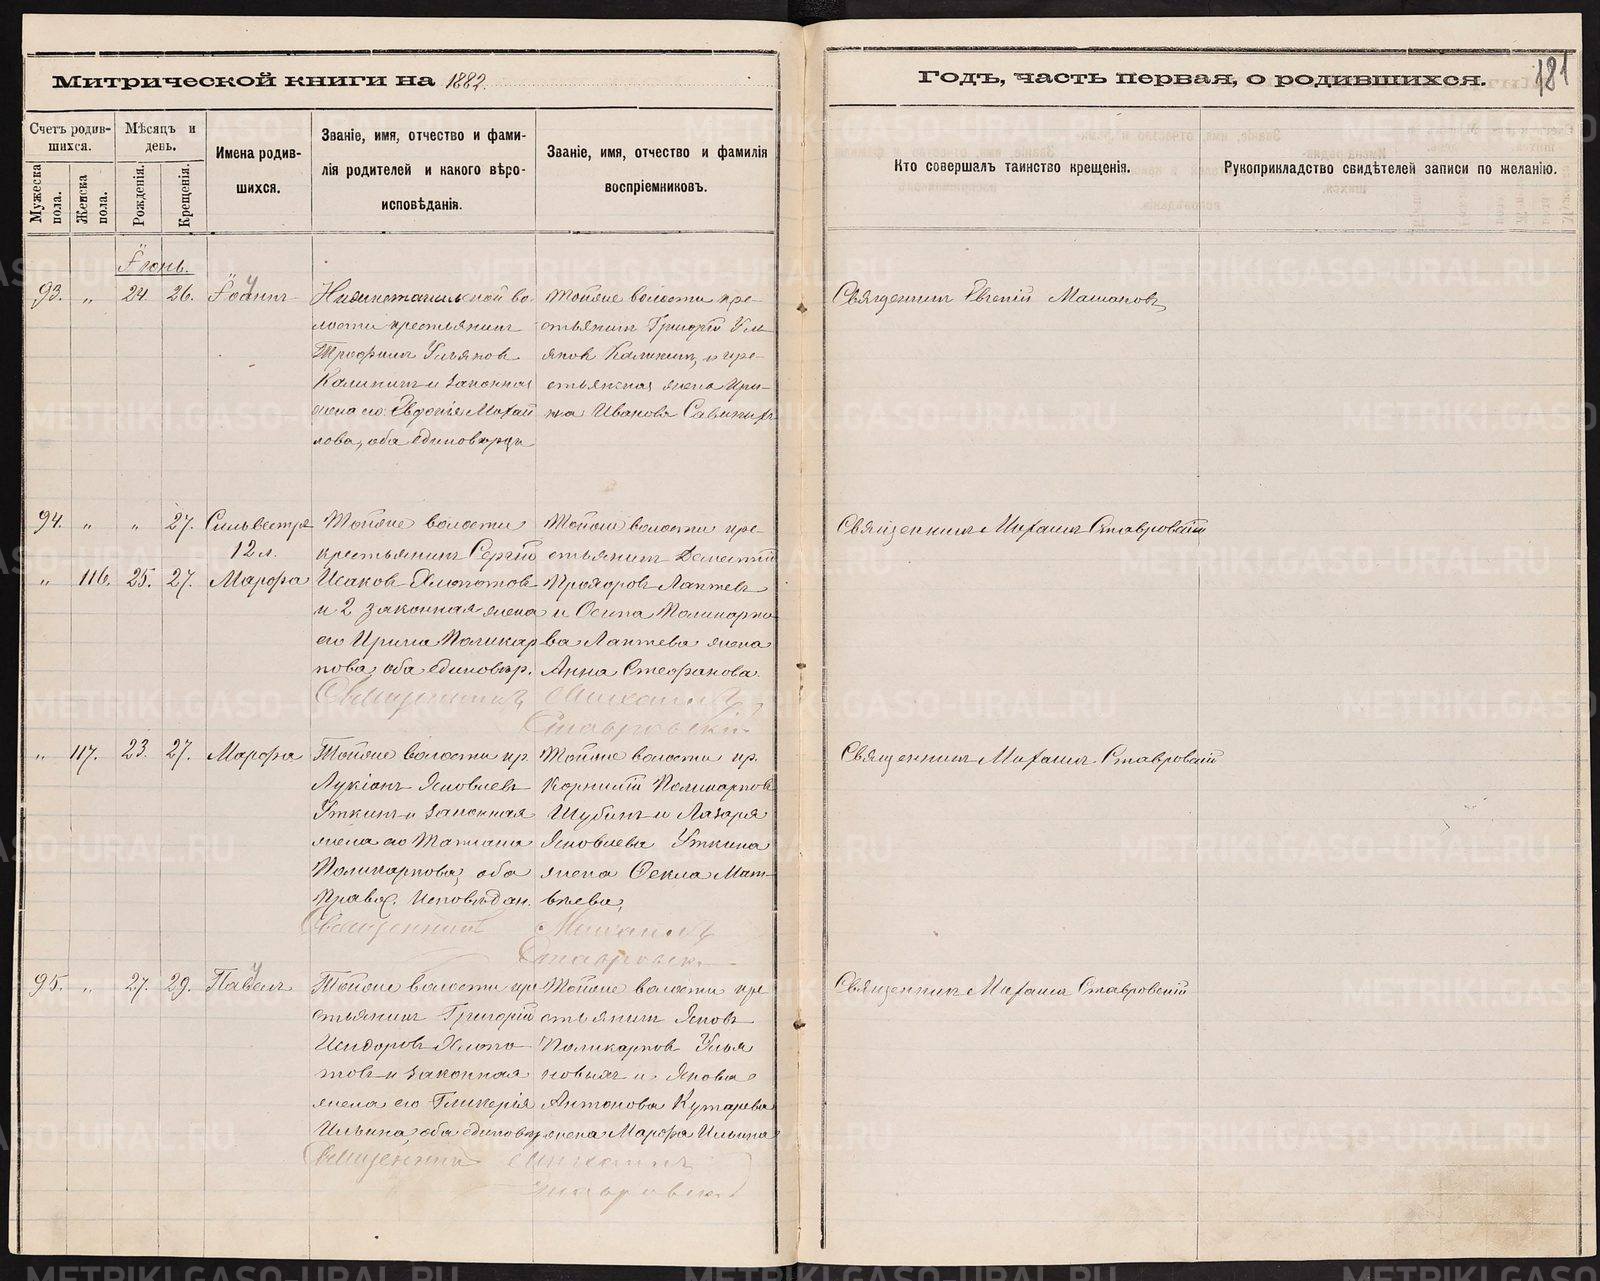 Митрической книги на 1882.
Годъ, часть первая, о родившихся.
181
Счетъ родив-
шихся.
Мѣсяцъ и
день.
Имена родив-
шихся.
Званіе, имя, отчество и фами-
лія родителей и какого вѣро-
исповѣданія.
Званіе, имя, отчество и фамилія
воспріемниковъ.
Кто совершалъ таинство крещенія.
Рукоприкладство свидѣтелей записи по желанію.
Мужеска
пола.
Женска
пола.
Рожденія.
Крещенія.
Іюнь.
93. „ 24. 26. Іоаннъ
Нижнетагильской во-
лости крестьянинъ
Трофимъ Ульяновъ
Калининъ и законная
жена его Евфонія Михай
лова, оба единовѣрцы
Тойже волости кре-
стьянинъ Григорій Уль
яновъ Калининъ, и кре-
стьянская жена Ири-
на Иванова Савиныхъ
Священникъ Евгеній Машановъ
94. „ „ 27. Сильвестръ
12 л.
„ 116. 25. 27. Марфа
Тойже волости
крестьянинъ Сергій
Исаковъ Хлопотовъ
и 2 законная жена
его Ирина Поликар
пова, оба единовѣр.
Тойже волости кре-
стьянинъ Дементій
Прохоровъ Лаптевъ
и Осипа Поликарпо-
ва Лаптева жена
Анна Стефанова.
Священникъ Михаилъ
Ставровскій
Священникъ Михаилъ Ставровскій
„ 117. 23. 27. Марфа
Тойже волости кр.
Лукіанъ Яковлевъ
Уткинъ и законная
жена его Татіана
Поликарпова, оба
Правос. исповѣдан.
Тойже волости кр.
Корнилій Поликарповъ
Шубинъ и Лазаря
Яковлева Уткина
жена Фекла Мат-
вѣева,
Священникъ Михаилъ
Ставровск.
Священникъ Михаилъ Ставровскій
95. „ 27. 29. Павелъ
Тойже волости кре
стьянинъ Григорій
Исидоровъ Хлопо-
товъ и законная
жена его Гликерія
Ильина, оба единовѣр
Тойже волости кре
стьянинъ Яковъ
Поликарповъ Улья
новыхъ и Якова
Антонова Кутарева
жена Марфа Ильина
Священникъ Михаилъ
Ставровскій
Священникъ Михаилъ Ставровскій
METRIKI.GASO-URAL.RU